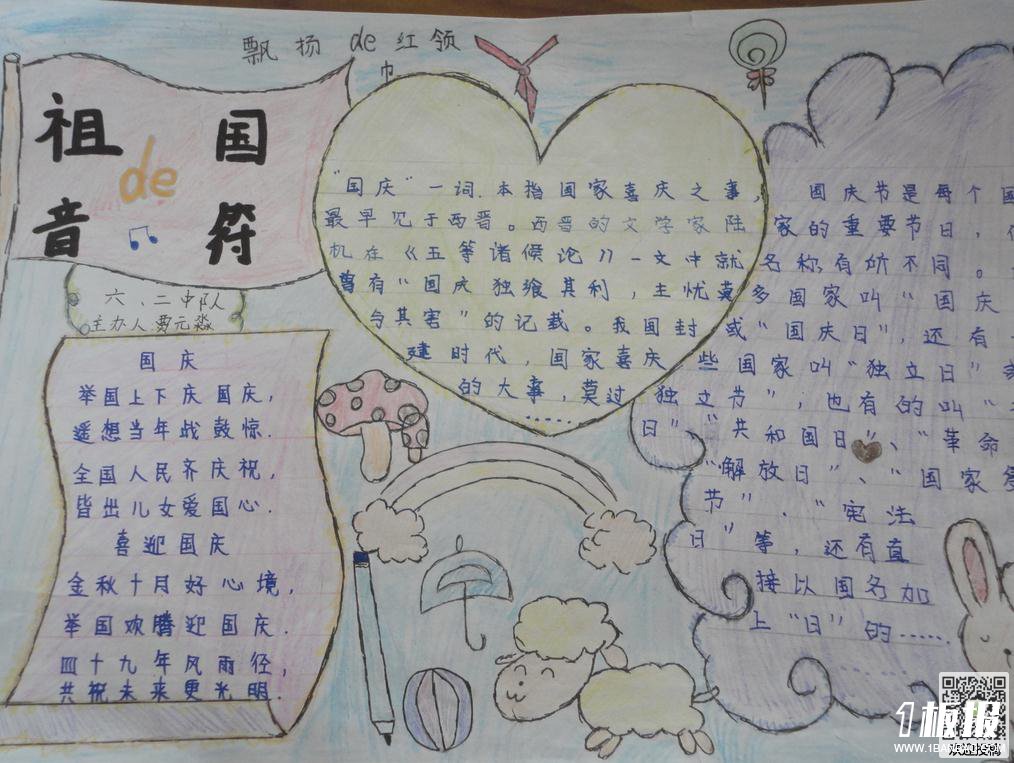 飘扬de红领
巾
祖国
de
音符
六、二中队
主办人贾元淼
国庆
举国上下庆国庆，
遥想当年战鼓惊.
全国人民齐庆祝，
皆出儿女爱国心.
喜迎国庆
金秋十月好心境，
举国欢腾迎国庆.
四十九年风雨径，
共祝未来更光明.
"国庆"一词.本指国家喜庆之事，
最早见于西晋。西晋的文学家陆
机在《五等诸候论》一文中就
曾有"国庆独飨其利，主忧莫
与其害"的记载。我国封
建时代，国家喜庆
的大事，莫过
……
国庆节是每个国
家的重要节日，
名称有所不同。
多国家叫"国庆
或"国庆日"，还有
些国家叫"独立日"
独立节"；也有的叫"
日"、"共和国日"、"革命
"解放日"、"国家
节"、"宪法
日"等，还有直
接以国名加
上"日"的……
1板报
WWW.1BANBAO.COM
欢迎投稿